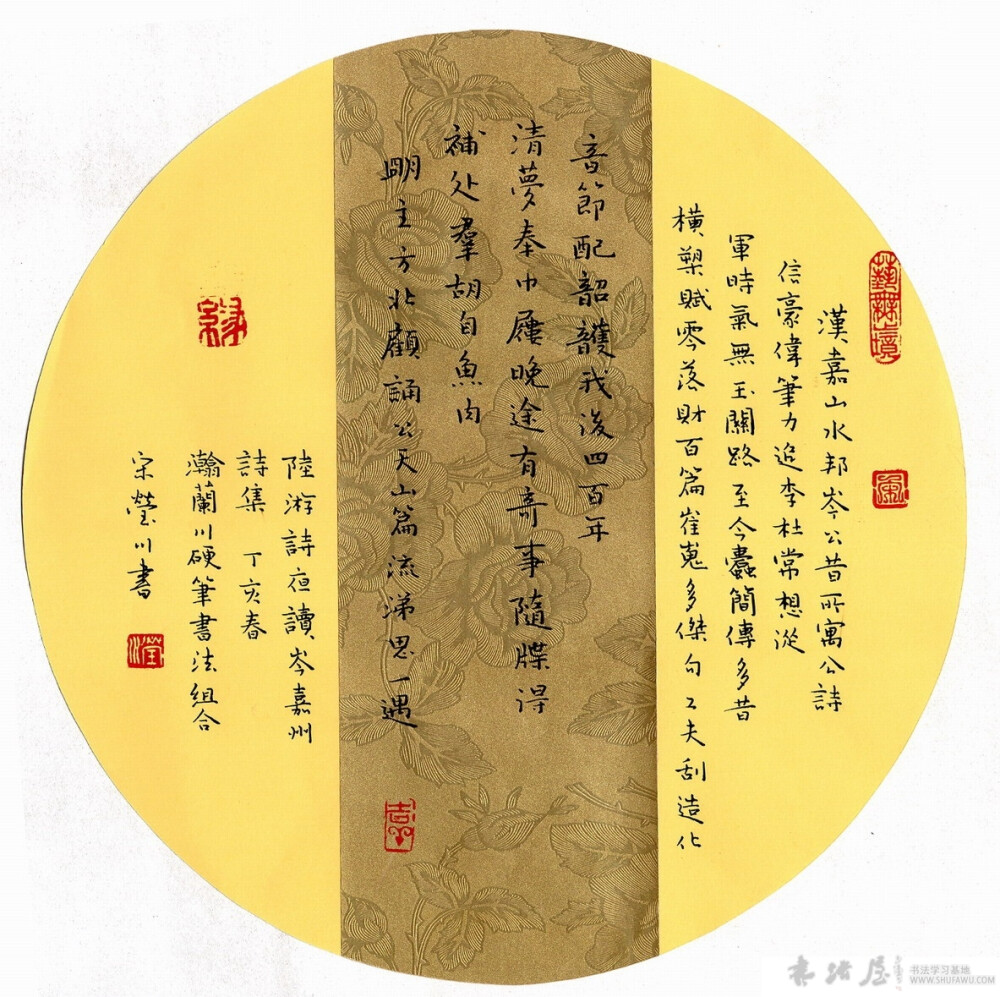 藝無境
漢嘉山水邦岑公昔所寓公詩
信豪偉筆力追李杜常想從
軍時氣無玉關路至今蠹簡傳多昔
橫槊賦零落財百篇崔嵬多傑句工夫刮造化
音節配韶頀我後四百年
清夢奉巾屨晚途有奇事隨牒得
補处羣胡自魚肉
朙主方北顧誦公天山篇流涕思一遇
陸游詩夜讀岑嘉州
詩集 丁亥春
瀚蘭川硬筆書法組合
宋瑩川書
书法屋
书法学习基地
WWW.SHUFAWU.COM